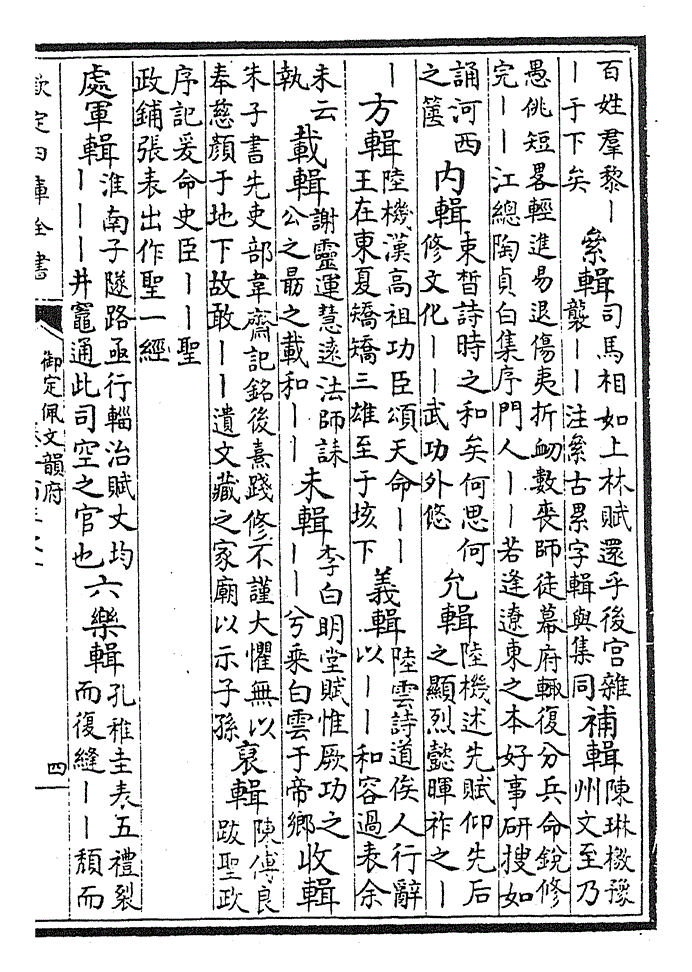 百姓羣黎｜
｜于下矣
絫輯
司馬相如上林賦還乎後宫雜
襲｜｜注絫古累字輯與集同
補輯
陳琳檄豫
州文至乃
愚佻短畧輕進易退傷夷折衂數喪師徒幕府輒復分兵命銳修
完｜｜江總陶貞白集序門人｜｜若逢遼東之本好事研搜如
誦河西
之篋
内輯
束晳詩時之和矣何思何
修文化｜｜武功外悠
允輯
陸機述先賦仰先后
之顯烈懿暉祚之｜
｜
方輯
陸機漢高祖功臣頌天命｜｜
王在東夏矯矯三雄至于垓下
義輯
陸雲詩道俟人行辭
以｜｜和容過表余
未云
執
載輯
謝靈運慧遠法師誄
公之勗之載和｜｜
未輯
李白明堂賦惟厥功之
｜｜兮乘白雲于帝鄉
收輯
朱子書先吏部韋齋記銘後熹踐修不謹大懼無以
奉慈顔于地下故敢｜｜遺文藏之家廟以示子孫
裒輯
陳傅良
跋聖政
序記爰命史臣｜｜聖
政鋪張表出作聖一經
處軍輯
淮南子隧路亟行輜治賦丈均
｜｜｜井竈通此司空之官也
六樂輯
孔稚圭表五禮裂
而復縫｜｜頽而
欽定四庫全書
御定佩文韻府
四